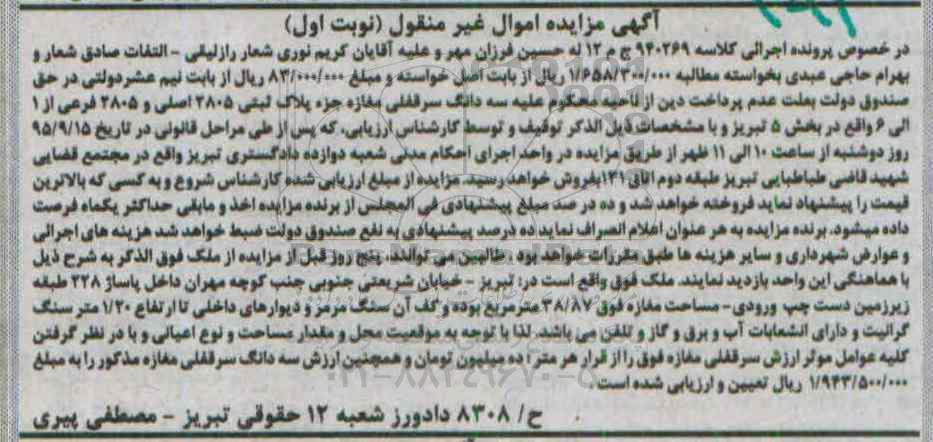 آگهی مزایده اموال غیر منقول (نوبت اول)
در خصوص پرونده اجرائی کلاسه ۹۴۰۲۶۹ ج م ۱۲ له حسین فرزان مهر و علیه آقایان کریم نوری شعار رازلیقی - التفات صادق شعار و
بهرام حاجی عبدی بخواسته مطالبه ۱/۶۵۸/۳۰۰/۰۰۰ ریال از بابت اصل خواسته و مبلغ ۸۳/۰۰۰/۰۰۰ ریال از بابت نیم عشردولتی در حق
صندوق دولت بعلت عدم پرداخت دین از ناحیه محکوم علیه سه دانگ سرقفلی مغازه جزء پلاک ثبتی ۲۸۰۵ اصلی و ۲۸۰۵ فرعی از ۱
الی ۶ واقع در بخش ۵ تبریز و با مشخصات ذیل الذکر توقیف و توسط کارشناس ارزیابی، که پس از طی مراحل قانونی در تاریخ ۹۵/۹/۱۵
روز دوشنبه از ساعت ۱۰ الی ۱۱ ظهر از طریق مزایده در واحد اجرای احکام مدنی شعبه دوازده دادگستری تبریز واقع در مجتمع قضایی
شهید قاضی طباطبایی تبریز طبقه دوم اتاق ۱۳۱ بفروش خواهد رسید. مزایده از مبلغ ارزیابی شده کارشناس شروع و به کسی که بالاترین
قیمت را پیشنهاد نماید فروخته خواهد شد و ده در صد مبلغ پیشنهادی فی المجلس از برنده مزایده اخذ و مابقی حداکثر یکماه فرصت
داده میشود. برنده مزایده به هر عنوان اعلام انصراف نماید ده درصد پیشنهادی به نفع صندوق دولت ضبط خواهد شد هزینه های اجرائی
و عوارض شهرداری و سایر هزینه ها طبق مقررات خواهد بود . طالبین می توانند، پنج روز قبل از مزایده از ملک فوق الذکر به شرح ذیل
با هماهنگی این واحد بازدید نمایند. ملک فوق واقع است در: تبریز - خیابان شریعتی جنوبی جنب کوچه مهران داخل پاساژ ۲۲۸ طبقه
زیرزمین دست چپ ورودی- مساحت مغازه فوق ۳۸/۸۷ مترمربع بوده و کف آن سنگ مرمر و دیوارهای داخلی تا ارتفاع ۱/۲۰ متر سنگ
گرانیت و دارای انشعابات آب و برق و گاز و تلفن می باشد. لذا با توجه به موقعیت محل و مقدار مساحت و نوع اعیانی و با در نظر گرفتن
کلیه عوامل موثر ارزش سرقفلی مغازه فوق را از قرار هر متر؛ ده میلیون تومان و همچنین ارزش سه دانگ سرقفلی مغازه مذکور را به مبلغ
۱/۹۴۳/۵۰۰/۰۰۰ ریال تعیین و ارزیابی شده است.
ح/ ۸۳۰۸ دادورز شعبه ۱۲ حقوقی تبریز - مصطفی پیری
۰۲۱-۸۸۳۴۹۶۷۰-۵